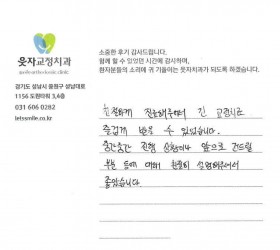 웃자교정치과
smile orthodontic clinic
경기도 성남시 중원구 성남대로
1156 도원타워 3,4층
031 606 0282
letssmile.co.kr
소중한 후기 감사드립니다.
함께 할 수 있었던 시간에 감사하며,
환자분들의 소리에 귀 기울이는 웃자치과가 되도록 하겠습니다.
친절하게 진료해주셔서 긴 교정치료
즐겁게 받을 수 있었습니다.
중간중간 진행 상황이나 앞으로 건드릴
부분 등에 대해 친절히 설명해주셔서
좋았습니다.